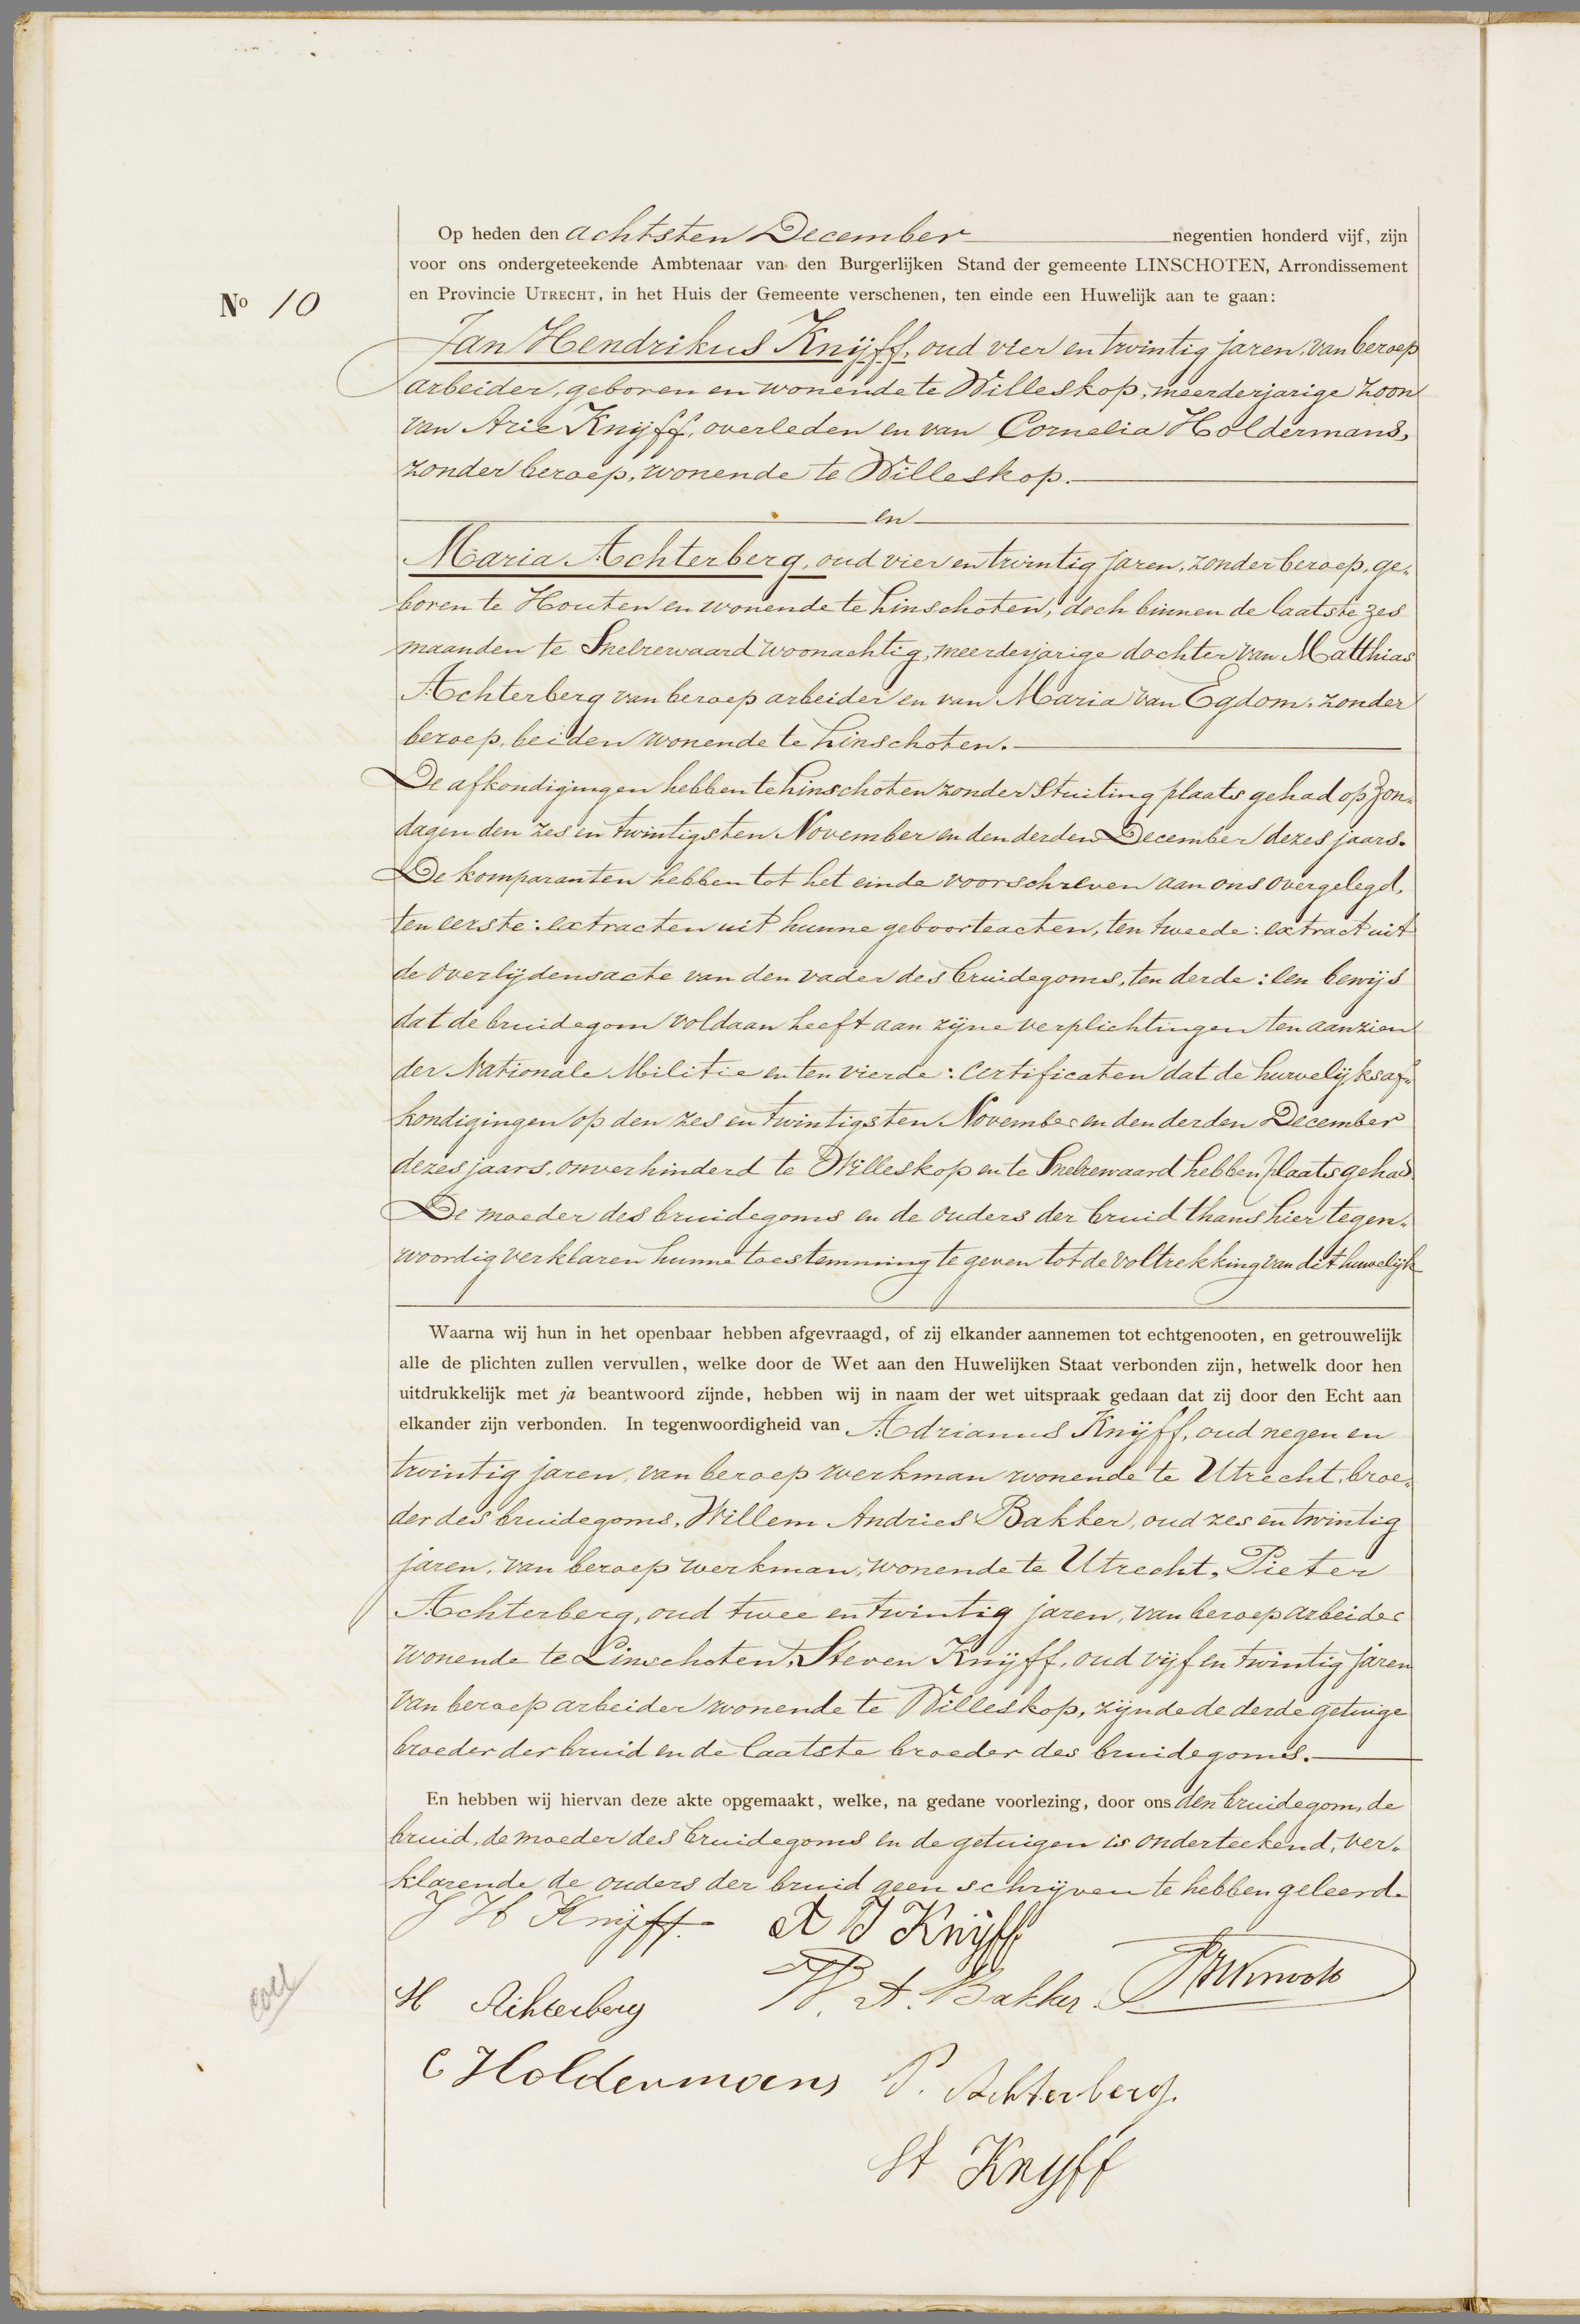 Op heden den achtsten December negentien honderd vijf, zijn
voor ons ondergeteekende Ambtenaar van den Burgerlijken Stand der gemeente LINSCHOTEN, Arrondissement
en Provincie UTRECHT, in het Huis der Gemeente verschenen, ten einde een Huwelijk aan te gaan:
No 10
Jan Hendrikus Knijff, oud vier en twintig jaren, van beroep
arbeider, geboren en wonende te Willeskop, meerderjarige zoon
van Arie Knijff, overleden en van Cornelia Holdermans,
zonder beroep, wonende te Willeskop.
en
Maria Achterberg, oud vier en twintig jaren, zonder beroep, ge„
boren te Houten en wonende te Linschoten, doch binnen de laatste zes
maanden te Snelrewaard woonachtig, meerderjarige dochter van Matthias
Achterberg van beroep arbeider en van Maria van Egdom, zonder
beroep, beiden wonende te Linschoten.
De afkondigingen hebben te Linschoten zonder stuiting plaats gehad op Zon„
dagen den zes en twintigsten November en den derden December dezes jaars.
De komparanten hebben tot het einde voorschreven aan ons overgelegd,
ten eerste: extracten uit hunne geboorteacten, ten tweede: extract uit
de overlijdensacte van den vader des bruidegoms, ten derde: een bewijs
dat de bruidegom voldaan heeft aan zijne verplichtingen ten aanzien
der Nationale Militie en ten vierde: certificaten dat de huwelijksaf„
kondigingen op den zes en twintigsten November en den derden December
dezes jaars, onverhinderd te Willeskop en te Snelrewaard hebben plaats gehad.
De moeder des bruidegoms en de ouders der bruid thans hier tegen„
woordig verklaren hunne toestemming te geven tot de voltrekking van dit huwelijk
Waarna wij hun in het openbaar hebben afgevraagd, of zij elkander aannemen tot echtgenooten, en getrouwelijk
alle de plichten zullen vervullen, welke door de Wet aan den Huwelijken Staat verbonden zijn, hetwelk door hen
uitdrukkelijk met ja beantwoord zijnde, hebben wij in naam der wet uitspraak gedaan dat zij door den Echt aan
elkander zijn verbonden. In tegenwoordigheid van Adrianus Knijff, oud negen en
twintig jaren, van beroep werkman wonende te Utrecht, broe„
der des bruidegoms, Willem Andries Bakker, oud zes en twintig
jaren, van beroep werkman, wonende te Utrecht, Pieter
Achterberg, oud twee en twintig jaren, van beroep arbeider
wonende te Linschoten, Steven Knijff, oud vijf en twintig jaren
van beroep arbeider wonende te Willeskop, zijnde de derde getuige
broeder der bruid en de laatste broeder des bruidegoms.
En hebben wij hiervan deze akte opgemaakt, welke, na gedane voorlezing, door ons den bruidegom, de
bruid, de moeder des bruidegoms en de getuigen is onderteekend, ver„
klarende de ouders der bruid geen schrijven te hebben geleerd.
J H Knijff. A J Knijff
M Achterberg W. A. Bakker.
C Holdermans P. Achterberg.
St Knyff